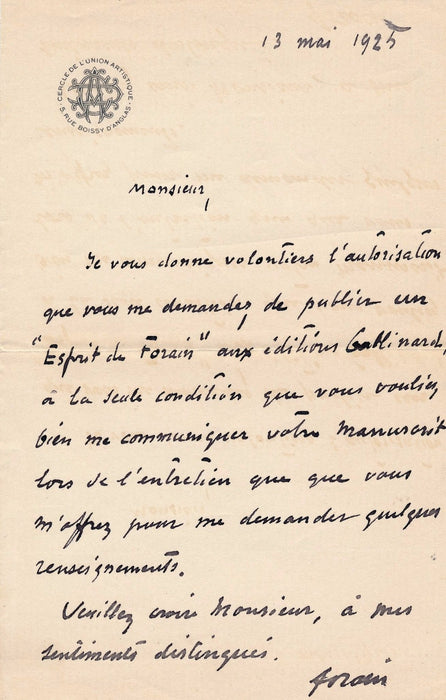 13 mai 1925
CERCLE DE L'UNION ARTISTIQUE
5, RUE BOISSY D'ANGLAS
Monsieur,
Je vous donne volontiers l'autorisation
que vous me demandez de publier un
"Esprit de Forain" aux éditions Gallimard,
à la seule condition que vous vouliez
bien me communiquer votre manuscrit
lors de l'entretien que que vous
m'offrez pour me demander quelques
renseignements.
Veuillez croire Monsieur, à mes
sentiments distingués.
forain